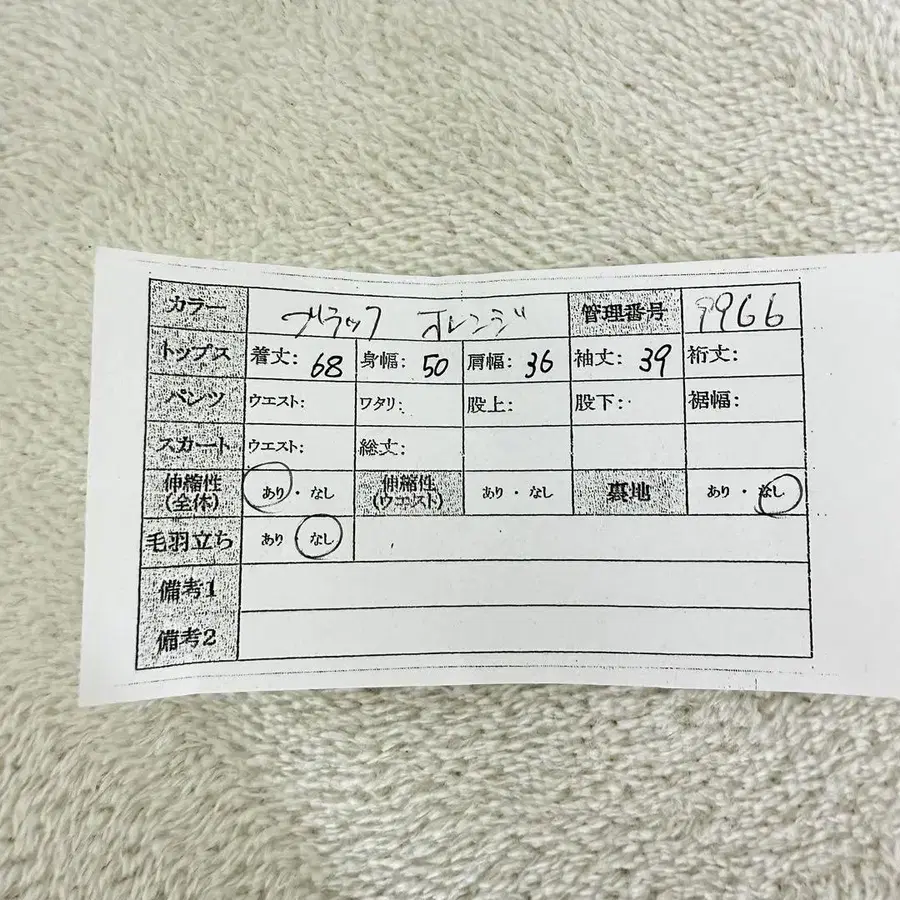 カラー ブラック オレンジ 管理番号 9966
トップス 着丈: 68 身幅: 50 肩幅: 36 袖丈: 39 裄丈:
パンツ ウエスト: ワタリ: 股上: 股下: 裾幅:
スカート ウエスト: 総丈:
伸縮性(全体) あり・なし 伸縮性(ウエスト) あり・なし 裏地 あり・なし
毛羽立ち あり・なし
備考1
備考2